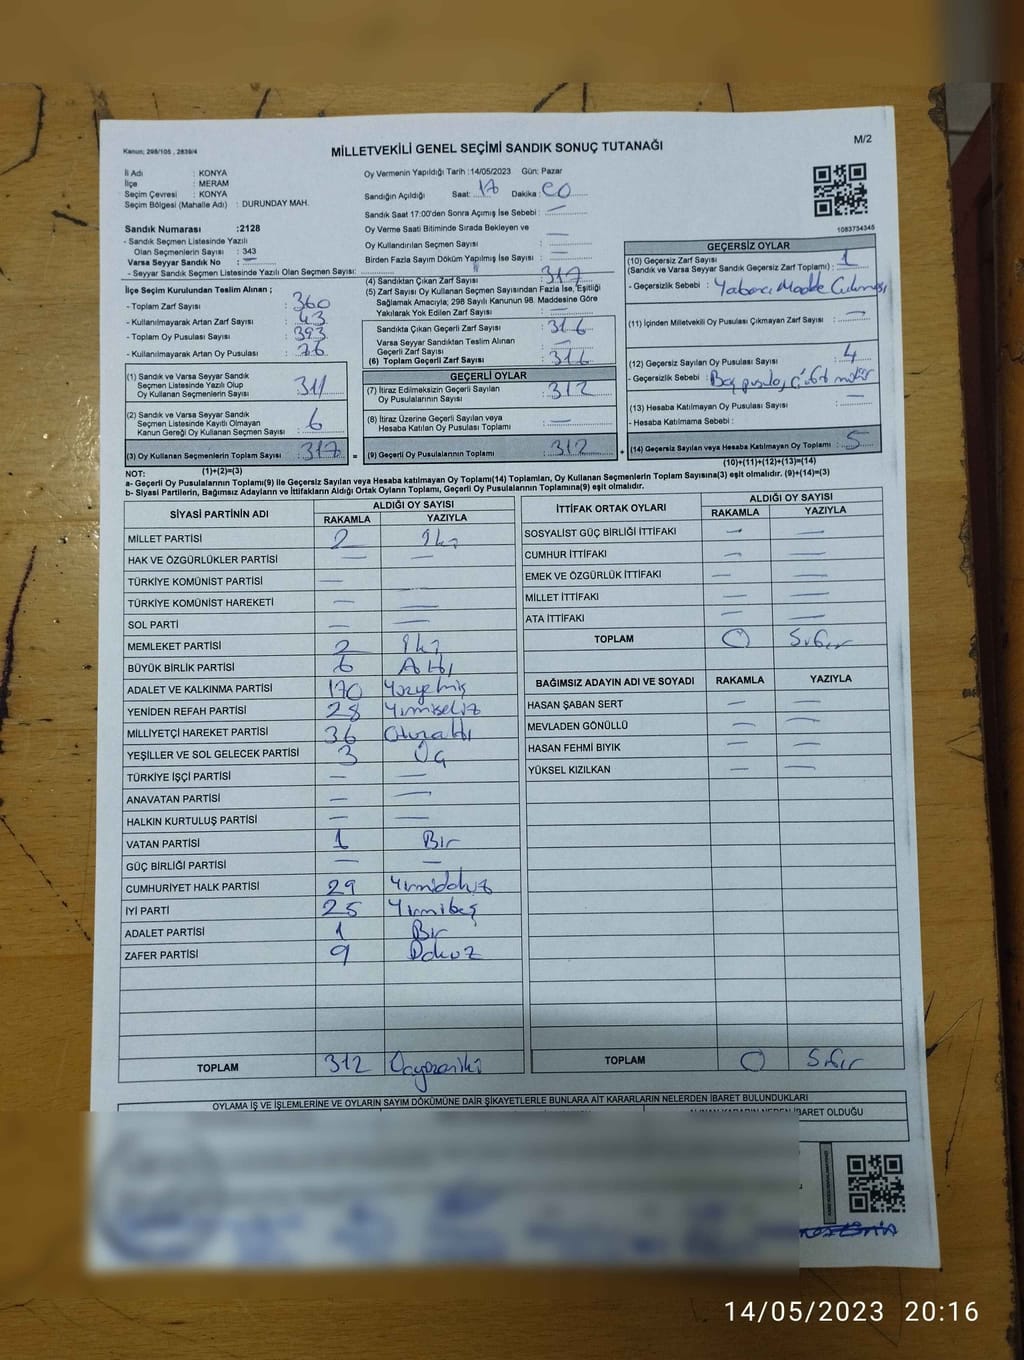 Kanun; 298/105 , 2839/4
MİLLETVEKİLİ GENEL SEÇİMİ SANDIK SONUÇ TUTANAĞI
M/2
İl Adı : KONYA
İlçe : MERAM
Seçim Çevresi : KONYA
Seçim Bölgesi (Mahalle Adı) : DURUNDAY MAH.
Oy Vermenin Yapıldığı Tarih :14/05/2023 Gün: Pazar
Sandığın Açıldığı Saat: 17 Dakika: 00
Sandık Saat 17:00'den Sonra Açımış İse Sebebi : —
Oy Verme Saati Bitiminde Sırada Bekleyen ve
Oy Kullandırılan Seçmen Sayısı : —
Birden Fazla Sayım Döküm Yapılmış İse Sayısı : —
1083754345
Sandık Numarası :2128
- Sandık Seçmen Listesinde Yazılı
Olan Seçmenlerin Sayısı : 343
Varsa Seyyar Sandık No : —
- Seyyar Sandık Seçmen Listesinde Yazılı Olan Seçmen Sayısı:
İlçe Seçim Kurulundan Teslim Alınan ;
- Toplam Zarf Sayısı : 360
- Kullanılmayarak Artan Zarf Sayısı : 43
- Toplam Oy Pusulası Sayısı : 393
- Kullanılmayarak Artan Oy Pusulası : 76
(1) Sandık ve Varsa Seyyar Sandık
Seçmen Listesinde Yazılı Olup
Oy Kullanan Seçmenlerin Sayısı : 311
(2) Sandık ve Varsa Seyyar Sandık
Seçmen Listesinde Kayıtlı Olmayan
Kanun Gereği Oy Kullanan Seçmen Sayısı : 6
(3) Oy Kullanan Seçmenlerin Toplam Sayısı : 317 =
(4) Sandıktan Çıkan Zarf Sayısı : 317
(5) Zarf Sayısı Oy Kullanan Seçmen Sayısından Fazla İse, Eşitliği
Sağlamak Amacıyla; 298 Sayılı Kanunun 98. Maddesine Göre
Yakılarak Yok Edilen Zarf Sayısı :
Sandıkta Çıkan Geçerli Zarf Sayısı : 316
Varsa Seyyar Sandıktan Teslim Alınan
Geçerli Zarf Sayısı : —
(6) Toplam Geçerli Zarf Sayısı : 316
GEÇERLİ OYLAR
(7) İtiraz Edilmeksizin Geçerli Sayılan
Oy Pusulalarının Sayısı : 312
(8) İtiraz Üzerine Geçerli Sayılan veya
Hesaba Katılan Oy Pusulaları Toplamı : —
(9) Geçerli Oy Pusulalarının Toplamı : 312 +
GEÇERSİZ OYLAR
(10) Geçersiz Zarf Sayısı
(Sandık ve Varsa Seyyar Sandık Geçersiz Zarf Toplamı) : 1
- Geçersizlik Sebebi : Yabancı Madde Çıkması
(11) İçinden Milletvekili Oy Pusulası Çıkmayan Zarf Sayısı : —
(12) Geçersiz Sayılan Oy Pusulası Sayısı : 4
- Geçersizlik Sebebi : Boş pusula, Çift mühür
(13) Hesaba Katılmayan Oy Pusulası Sayısı : —
- Hesaba Katılmama Sebebi :
(14) Geçersiz Sayılan veya Hesaba Katılmayan Oy Toplamı : 5
NOT: (1)+(2)=(3)
(10)+(11)+(12)+(13)=(14)
a- Geçerli Oy Pusulalarının Toplamı(9) ile Geçersiz Sayılan veya Hesaba katılmayan Oy Toplamı(14) Toplamları, Oy Kullanan Seçmenlerin Toplam Sayısına(3) eşit olmalıdır. (9)+(14)=(3)
b- Siyasi Partilerin, Bağımsız Adayların ve İttifakların Aldığı Ortak Oyların Toplamı, Geçerli Oy Pusulalarının Toplamına(9) eşit olmalıdır.
SİYASİ PARTİNİN ADI ALDIĞI OY SAYISI
RAKAMLA YAZIYLA
MİLLET PARTİSİ 2 İki
HAK VE ÖZGÜRLÜKLER PARTİSİ — —
TÜRKİYE KOMÜNİST PARTİSİ —
TÜRKİYE KOMÜNİST HAREKETİ — —
SOL PARTİ — —
MEMLEKET PARTİSİ 2 İki
BÜYÜK BİRLİK PARTİSİ 6 Altı
ADALET VE KALKINMA PARTİSİ 170 Yüzyetmiş
YENİDEN REFAH PARTİSİ 28 Yirmisekiz
MİLLİYETÇİ HAREKET PARTİSİ 36 Otuzaltı
YEŞİLLER VE SOL GELECEK PARTİSİ 3 Üç
TÜRKİYE İŞÇİ PARTİSİ — —
ANAVATAN PARTİSİ — —
HALKIN KURTULUŞ PARTİSİ — —
VATAN PARTİSİ 1 Bir
GÜÇ BİRLİĞİ PARTİSİ — —
CUMHURİYET HALK PARTİSİ 29 Yirmidokuz
İYİ PARTİ 25 Yirmibeş
ADALET PARTİSİ 1 Bir
ZAFER PARTİSİ 9 Dokuz
TOPLAM 312 Üçyüzoniki
İTTİFAK ORTAK OYLARI ALDIĞI OY SAYISI
RAKAMLA YAZIYLA
SOSYALİST GÜÇ BİRLİĞİ İTTİFAKI — —
CUMHUR İTTİFAKI — —
EMEK VE ÖZGÜRLÜK İTTİFAKI — —
MİLLET İTTİFAKI — —
ATA İTTİFAKI — —
TOPLAM 0 Sıfır
BAĞIMSIZ ADAYIN ADI VE SOYADI RAKAMLA YAZIYLA
HASAN ŞABAN SERT — —
MEVLADEN GÖNÜLLÜ — —
HASAN FEHMİ BIYIK — —
YÜKSEL KIZILKAN — —
TOPLAM 0 Sıfır
OYLAMA İŞ VE İŞLEMLERİNE VE OYLARIN SAYIM DÖKÜMÜNE DAİR ŞİKAYETLERLE BUNLARA AİT KARARLARIN NELERDEN İBARET BULUNDUKLARI
ALINAN KARARIN NEDEN İBARET OLDUĞU
14/05/2023 20:16